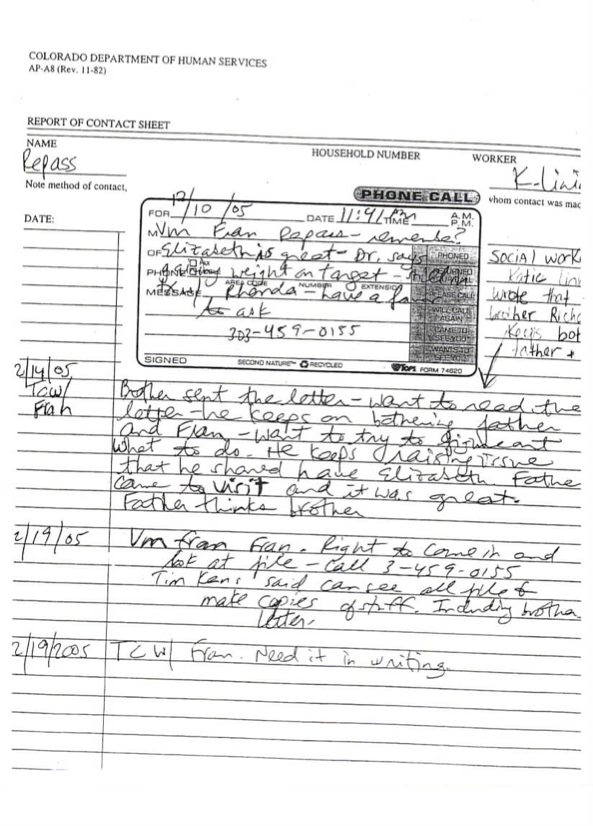 COLORADO DEPARTMENT OF HUMAN SERVICES
AP-A8 (Rev. 11-82)
REPORT OF CONTACT SHEET
NAME
HOUSEHOLD NUMBER
WORKER
Repass
K-Lini
Note method of contact,
PHONE CALL
whom contact was mad
DATE:
FOR 12/10/05 DATE 11:41 TIME A.M. P.M.
M Vm Fran Repass - remember?
OF Elizabeth is great - Dr. says PHONED
PHONE weight on target -
AREA CODE NUMBER EXTENSION
MESSAGE Rhonda - have a
to ask
WILL CALL AGAIN
CAME TO SEE YOU
WANTS TO SEE YOU
303-459-0155
SIGNED SECOND NATURE RECYCLED TOPS FORM 74620
Social work
Katie Lini
wrote that
brother Richa
bot
father +
2/14/05
TCW/
Fran
Brother sent the letter - want to read the
letter - he keeps on bothering father
and Fran - want to try to figure out
what to do. He keeps raising issue
that he should have Elizabeth. Fathe
came to visit and it was great.
Father thinks brother
2/19/05 Vm fran Fran. Right to come in and
look at file - call 3-459-0155
Tim said can see all file &
make copies of stuff. Including brothe
letter.
2/19/2005 TCW/ Fran. Need it in writing.